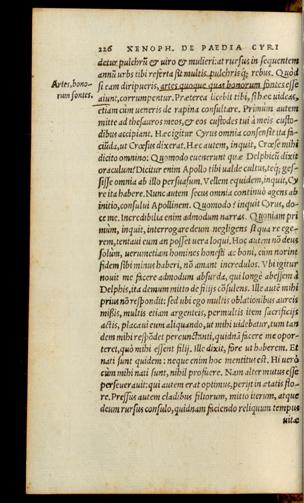 226 XENOPH. DE PAEDIA CYRI
detur pulchrũ & uiro & mulieri: at rursus in sequentem
annũ urbs tibi referta sit multis pulchrisq; rebus. Quòd
si eam diripueris, artes quoque quas bonorum fontes esse
Artes, bono-
rum fontes.
aiunt, corrumpentur. Præterea licebit tibi, si hæc uideas,
etiam cùm ueneris de rapina consultare. Primùm autem
mitte ad thesauros meos, & eos custodes tui à meis custo-
dibus accipiant. Hæc igitur Cyrus omnia consensit ita fa-
ciũda, ut Crœsus dixerat. Hæc autem, inquit, Crœse mihi
dicito omnino: Quomodo euenerunt quæ Delphicũ dixit
oraculum? Dicitur enim Apollo tibi ualde cultus, teq; ges-
sisse omnia ab illo persuasum. Vellem equidem, inquit, Cy
re ita habere. Nunc autem secus omnia continuò agens ab
initio, consului Apollinem. Quomodo? inquit Cyrus, do-
ce me. Incredibilia enim admodum narras. Quoniam pri
mùm, inquit, interrogare deum negligens si qua re ege-
rem, tentaui eum an posset uera loqui. Hoc autem nõ deus
solùm, uerumetiam homines honesti ac boni, cùm norint
fidem sibi minus haberi, nõ amant incredulos. Vbi igitur
nouit me facere admodum absurda, qui longè abessem à
Delphis, ita demum mitto de filijs cõsulens. Ille autẽ mihi
prius nõ respondit: sed ubi ego multis oblationibus aureis
missis, multis etiam argenteis, permultis item sacrificijs
actis, placaui eum aliquando, ut mihi uidebatur, tum tan
dem mihi respõdet percunctanti, quidnã facere me opor-
teret, quò mihi essent filij. Ille dixit, fore ut haberem. Et
nati sunt quidem: neque enim hoc mentitus est. Hi uerò
cùm mihi nati sunt, nihil profuere. Nam alter mutus esse
perseuerauit: qui autem erat optimus, perijt in ætatis flo-
re. Pressus autem cladibus filiorum, mitto iterum, atque
deum rursus consulo, quidnam faciendo reliquum tempus
uitæ